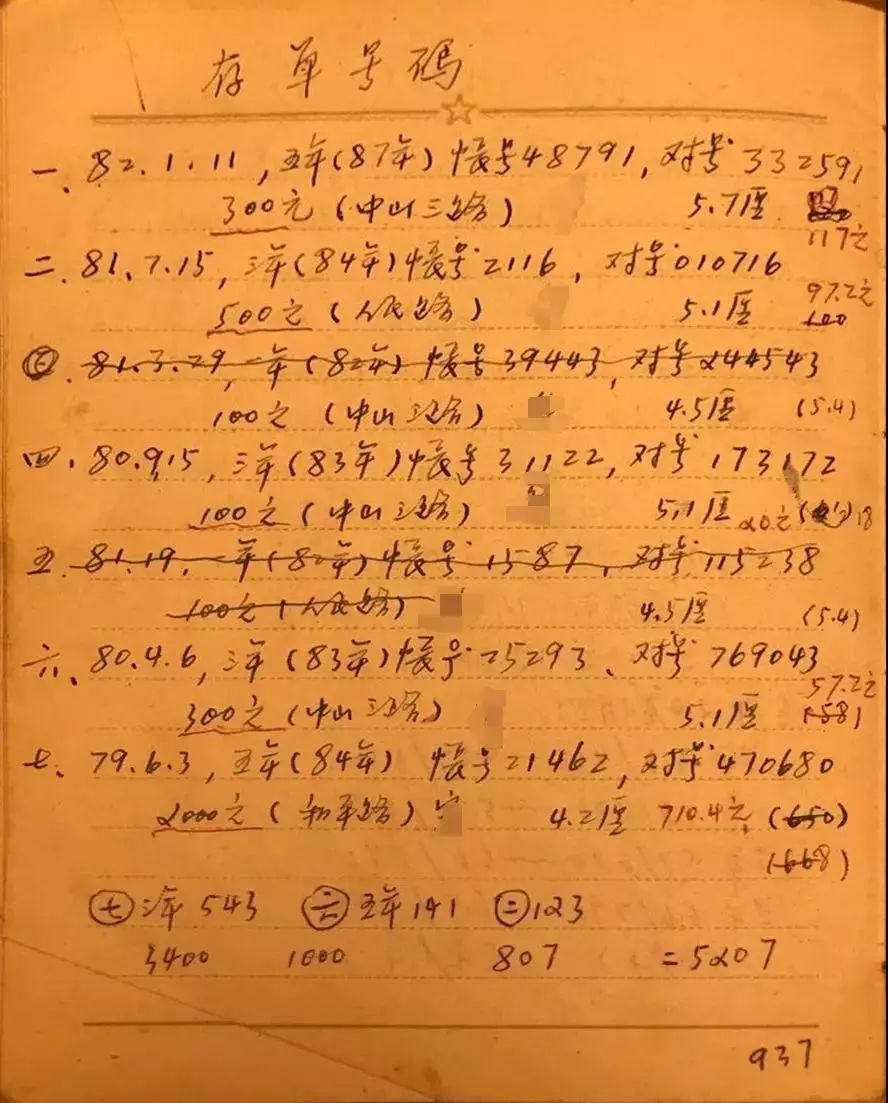 存单号码
一、82.1.11，五年(87年)帐号48791，对号332591
300元（中山三路） 5.7厘
117元
二、81.7.15，三年(84年)帐号2116，对号010716
97.2元
500元（人民路） 5.1厘 100
81.3.29，一年(82年)帐号39443，对号244543
100元（中山三路） 4.5厘 (5.4)
四、80.9.15，三年(83年)帐号31122，对号173172
100元（中山三路） 5.1厘 20元 18
五、81.19，一年(82年)帐号1587，对号115238
100元（人民路） 4.5厘 (5.4)
六、80.4.6，三年(83年)帐号25293、对号769043
57.2元
300元（中山三路） 5.1厘 (58)
七、79.6.3，五年(84年) 帐号21462，对号470680
2000元（和平路） 4.2厘 710.4元 (650)
(668)
㊆三年543 ㊅五年141 ㊁123
3400 1000 807 =5207
937